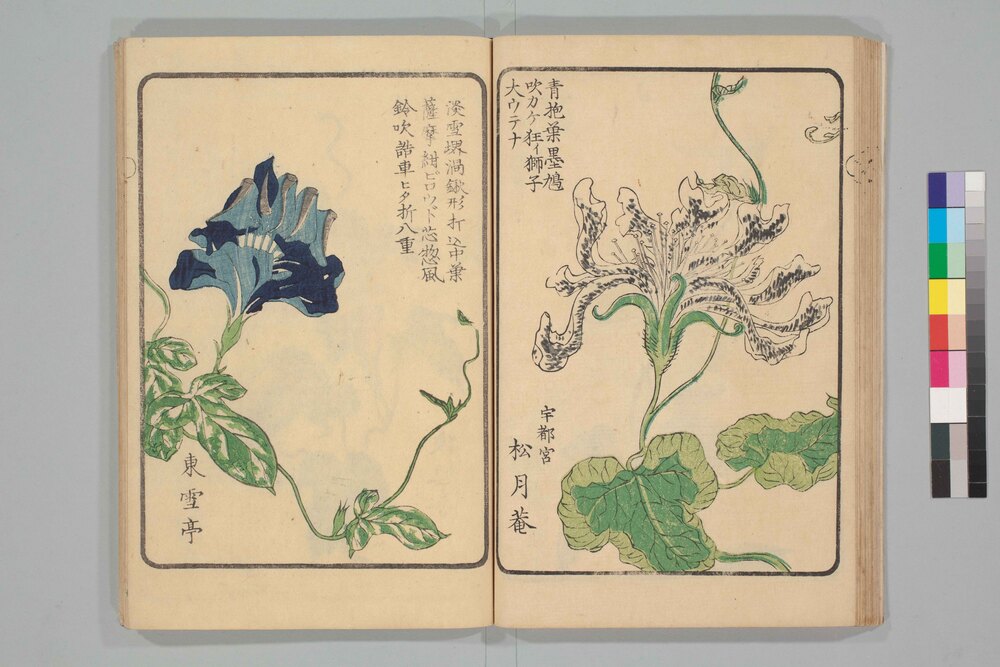 青抱葉墨鳩
吹カケ狂イ獅子
大ウテナ
宇都宮
松月菴
淡雪堺渦鍬形折込中葉
薩摩紺ビロウド芯惣風
鈴吹詰車ヒダ折八重
東雪亭